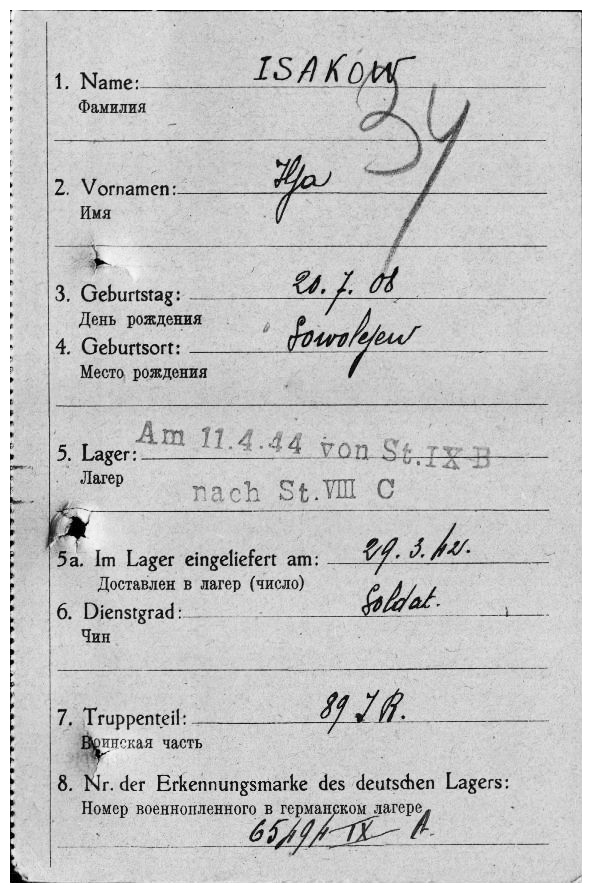 1. Name: ISAKOW
Фамилия
34
2. Vornamen: Ilja
Имя
3. Geburtstag: 20. 7. 08
День рождения
4. Geburtsort:
Место рождения
5. Lager: Am 11.4.44 von St. IX B
Лагер
nach St. VIII C
5a. Im Lager eingeliefert am: 29. 3. 42.
Доставлен в лагер (число)
6. Dienstgrad: Soldat.
Чин
7. Truppenteil: 89 J R.
Воинская часть
8. Nr. der Erkennungsmarke des deutschen Lagers:
Номер военнопленного в германском лагере
65494 IX A.